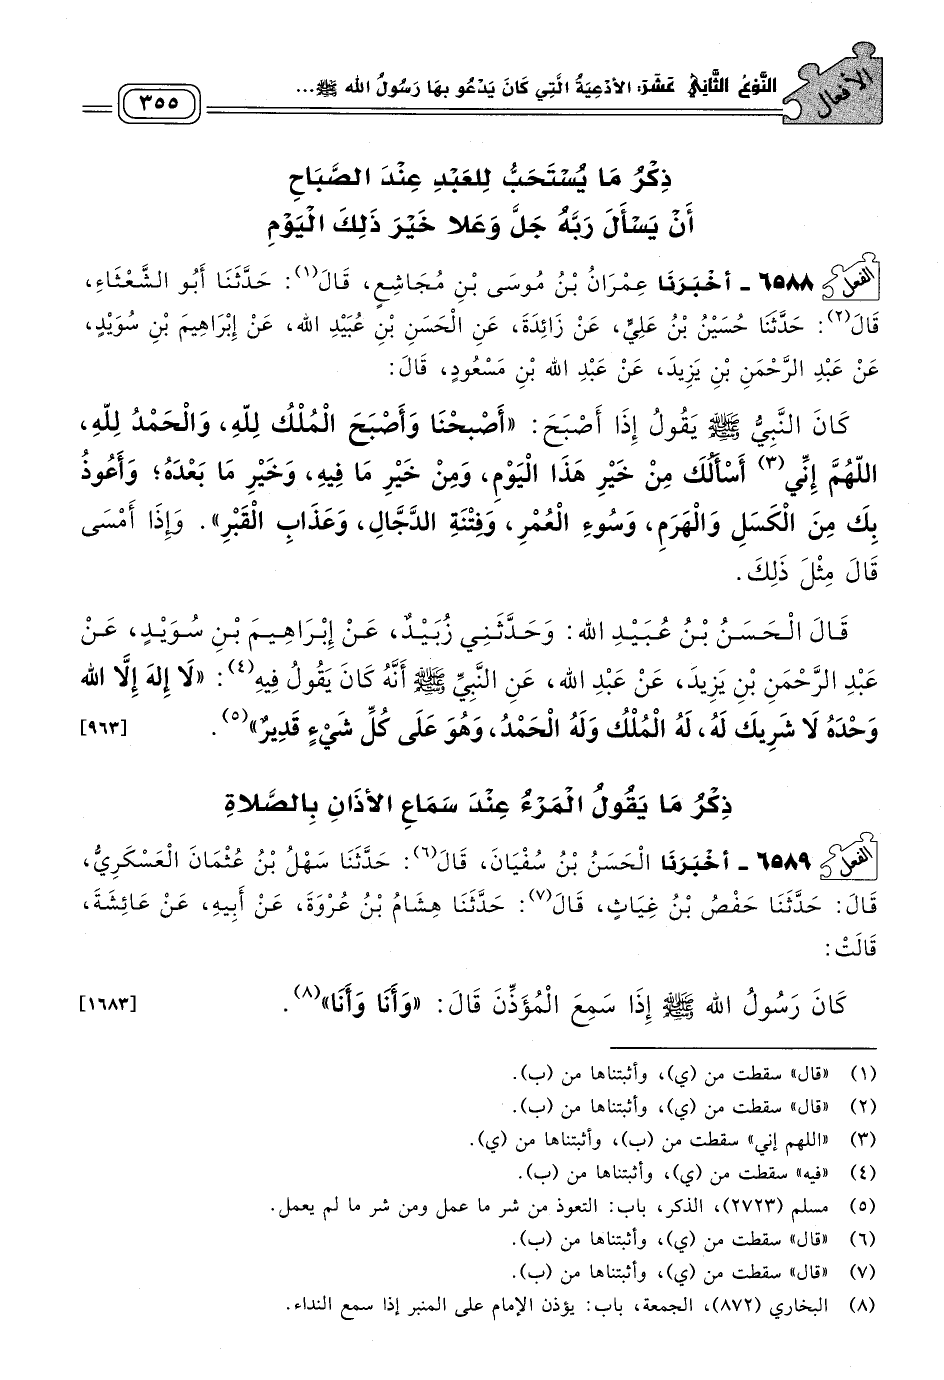 الأفعال
النَّوْعُ الثَّانِي عَشَرَ: الأدْعِيَةُ الَّتِي كَانَ يَدْعُو بِهَا رَسُولُ الله ﷺ...
٣٥٥
ذِكْرُ مَا يُسْتَحَبُّ لِلعَبْدِ عِنْدَ الصَّبَاحِ
أَنْ يَسْأَلَ رَبَّهُ جَلَّ وَعَلا خَيْرَ ذَلِكَ الْيَوْمِ
الفعل ٦٥٨٨ - أَخْبَرَنَا عِمْرَانُ بْنُ مُوسَى بْنِ مُجَاشِعٍ، قَالَ(١): حَدَّثَنَا أَبُو الشَّعْثَاءِ،
قَالَ(٢): حَدَّثَنَا حُسَيْنُ بْنُ عَلِيٍّ، عَنْ زَائِدَةَ، عَنِ الْحَسَنِ بْنِ عُبَيْدِ الله، عَنْ إِبْرَاهِيمَ بْنِ سُوَيْدٍ،
عَنْ عَبْدِ الرَّحْمَنِ بْنِ يَزِيدَ، عَنْ عَبْدِ الله بْنِ مَسْعُودٍ، قَالَ:
كَانَ النَّبِيُّ ﷺ يَقُولُ إِذَا أَصْبَحَ: «أَصْبَحْنَا وَأَصْبَحَ الْمُلْكُ لِلَّهِ، وَالْحَمْدُ لِلَّهِ،
اللَّهُمَّ إِنِّي(٣) أَسْأَلُكَ مِنْ خَيْرِ هَذَا الْيَوْمِ، وَمِنْ خَيْرِ مَا فِيهِ، وَخَيْرِ مَا بَعْدَهُ؛ وَأَعُوذُ
بِكَ مِنَ الْكَسَلِ وَالْهَرَمِ، وَسُوءِ الْعُمْرِ، وَفِتْنَةِ الدَّجَّالِ، وَعَذَابِ الْقَبْرِ». وَإِذَا أَمْسَى
قَالَ مِثْلَ ذَلِكَ.
قَالَ الْحَسَنُ بْنُ عُبَيْدِ الله: وَحَدَّثَنِي زُبَيْدٌ، عَنْ إِبْرَاهِيمَ بْنِ سُوَيْدٍ، عَنْ
عَبْدِ الرَّحْمَنِ بْنِ يَزِيدَ، عَنْ عَبْدِ الله، عَنِ النَّبِيِّ ﷺ أَنَّهُ كَانَ يَقُولُ فِيهِ(٤): «لَا إِلَهَ إِلَّا الله
وَحْدَهُ لَا شَرِيكَ لَهُ، لَهُ الْمُلْكُ وَلَهُ الْحَمْدُ، وَهُوَ عَلَى كُلِّ شَيْءٍ قَدِيرٌ»(٥). [٩٦٣]
ذِكْرُ مَا يَقُولُ الْمَرْءُ عِنْدَ سَمَاعِ الأذَانِ بِالصَّلاةِ
الفعل ٦٥٨٩ - أَخْبَرَنَا الْحَسَنُ بْنُ سُفْيَانَ، قَالَ(٦): حَدَّثَنَا سَهْلُ بْنُ عُثْمَانَ الْعَسْكَرِيُّ،
قَالَ: حَدَّثَنَا حَفْصُ بْنُ غِيَاثٍ، قَالَ(٧): حَدَّثَنَا هِشَامُ بْنُ عُرْوَةَ، عَنْ أَبِيهِ، عَنْ عَائِشَةَ،
قَالَتْ:
كَانَ رَسُولُ الله ﷺ إِذَا سَمِعَ الْمُؤَذِّنَ قَالَ: «وَأَنَا وَأَنَا»(٨). [١٦٨٣]
(١) «قال» سقطت من (ي)، وأثبتناها من (ب).
(٢) «قال» سقطت من (ي)، وأثبتناها من (ب).
(٣) «اللهم إني» سقطت من (ب)، وأثبتناها من (ي).
(٤) «فيه» سقطت من (ي)، وأثبتناها من (ب).
(٥) مسلم (٢٧٢٣)، الذكر، باب: التعوذ من شر ما عمل ومن شر ما لم يعمل.
(٦) «قال» سقطت من (ي)، وأثبتناها من (ب).
(٧) «قال» سقطت من (ي)، وأثبتناها من (ب).
(٨) البخاري (٨٧٢)، الجمعة، باب: يؤذن الإمام على المنبر إذا سمع النداء.